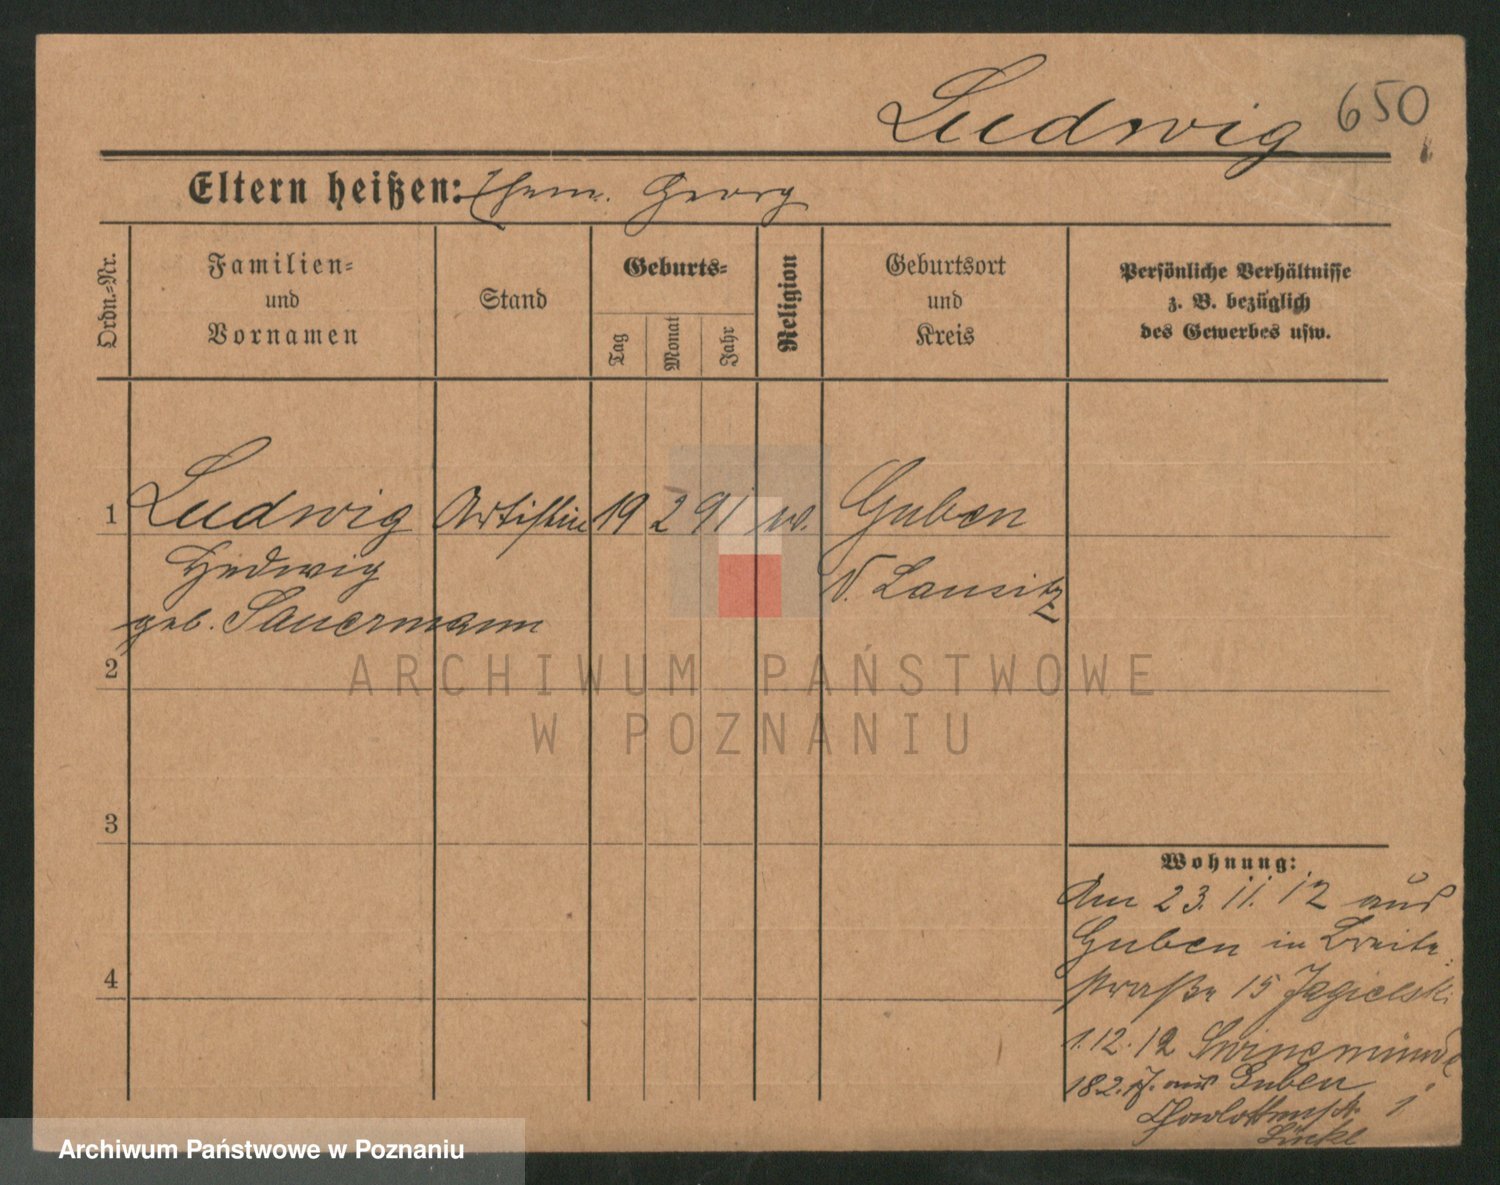 Ludwig 650
Eltern heißen: Ehem. Georg
Ordn.-Nr.
Familien-
und
Vornamen
Stand
Geburts-
Tag
Monat
Jahr
Religion
Geburtsort
und
Kreis
Persönliche Verhältnisse
z. B. bezüglich
des Gewerbes usw.
1 Ludwig Artistin 19 2 91 w. Guben
Hedwig N. Lausitz
geb. Sauermann
2
ARCHIWUM PAŃSTWOWE
W POZNANIU
3
4
Wohnung:
Am 23. 11. 12 aus
Guben in Breite-
straße 15 Jagielski
1. 12. 12 Swinemünde
18 2. aus Guben
Charlottenstr. 1
Archiwum Państwowe w Poznaniu